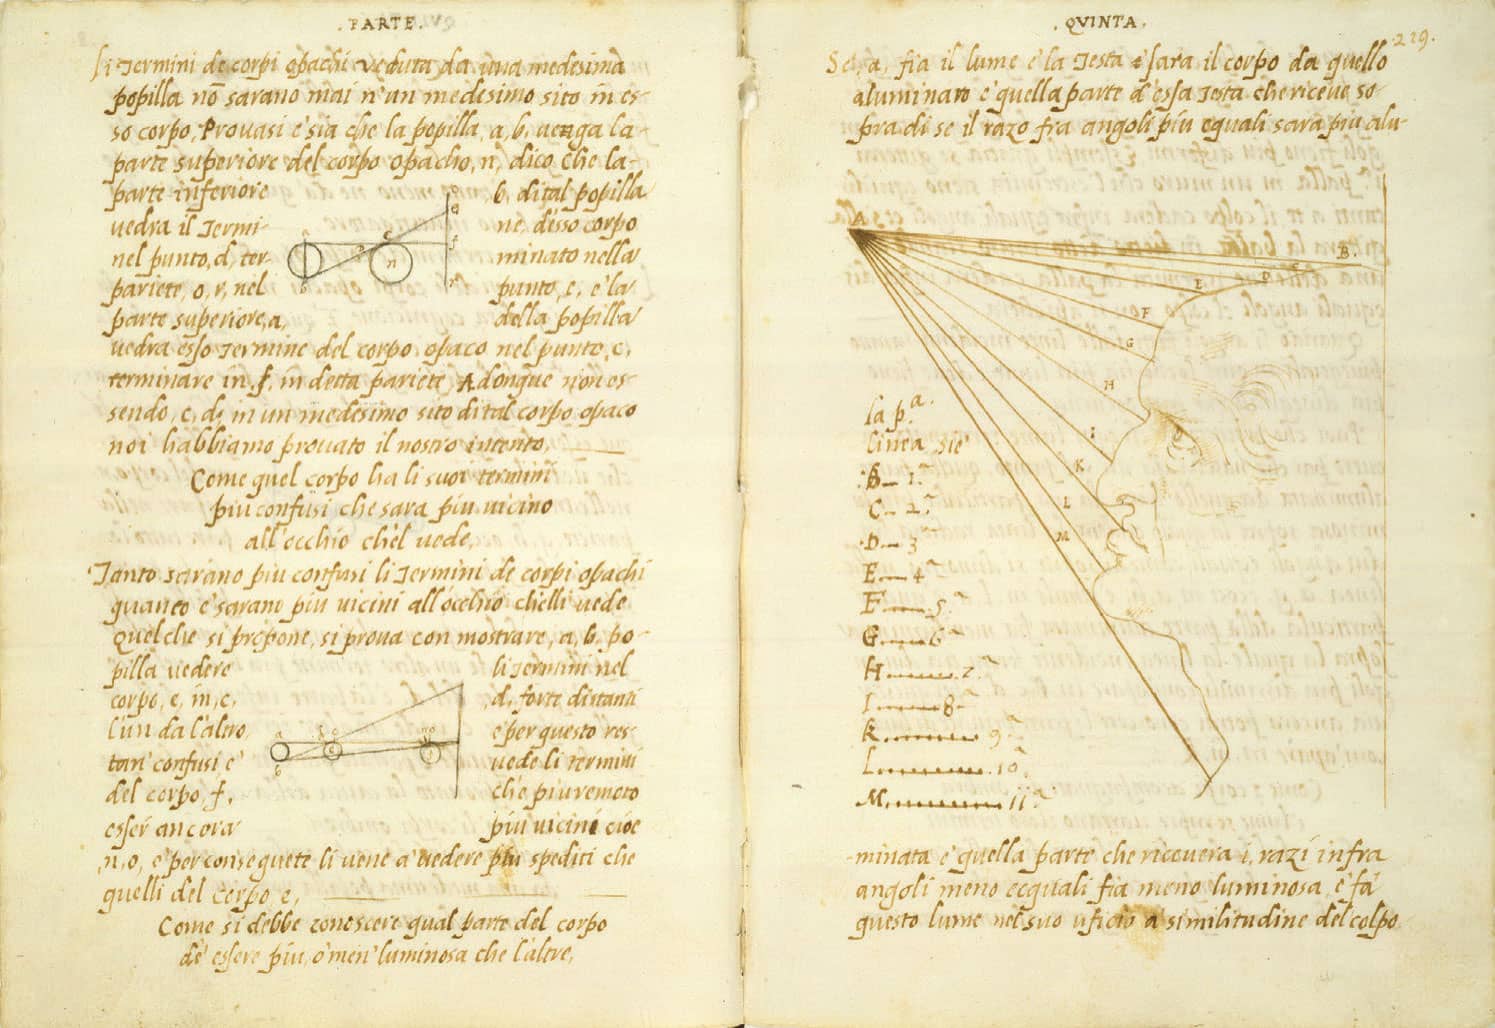 .PARTE.
Li Termini de corpi opachi veduta da una medesima
popilla nō sarano mai n'un medesimo sito in es-
so corpo, Provasi e sia che la popilla, a, b, uegga la-
parte superiore del corpo opacho, n, dico che la-
parte inferiore b, di tal popilla
vedra il Termi- ne, desso corpo
nel punto, d, ter- minato nella
pariete, o, r, nel punto, e, e la
parte superiore, a, della popilla
uedra esso Termine del corpo opaco nel punto, c,
terminare in, f, in detta pariete, Adonque non es-
sendo, c, d, in un medesimo sito di tal corpo opaco
noi habbiamo provato il nostro intento,
Come quel corpo ha li suoi termini
piu confusi che sara piu uicino
all'occhio ch'el uede,
Tanto sarano piu confusi li Termini de corpi opachi
quanto e sarano piu uicini all'ochio chelli uede
Quel che si propone, si prova con mostrare, a, b, po-
pilla uedere li Termini nel
corpo, e, in, c, d, forte distanti
l'un da l'altro e per questo res-
tan' confusi e' uede li termini
del corpo, f, che piu remoto
esser ancora piu uicini cioe
,n, o, e per conseguete li uene a uedere piu spediti che
quelli del corpo e,
Come si debbe conoscere qual parte del corpo
de' essere piu, o men' luminosa che l'altre,
.QVINTA.
.229.
Se, a, fia il lume e la Testa e sara il corpo da quello
aluminato e quella parte d'essa Testa che riceve so-
pra di se il razo fra angoli piu equali sara piu alu-
A
B
C
D
E
F
G
H
I
K
L
M
la p.a
linea sie
B 1.a
C 2.a
D 3
E 4.a
F 5.a
G 6.a
H 7.a
I 8.a
K 9.a
L 10.a
M 11.a
-minata e quella parte che ricevera i, razi infra
angoli meno ecquali fia meno luminosa, e fa
questo lume nel suo uficio a similitudine del colpo